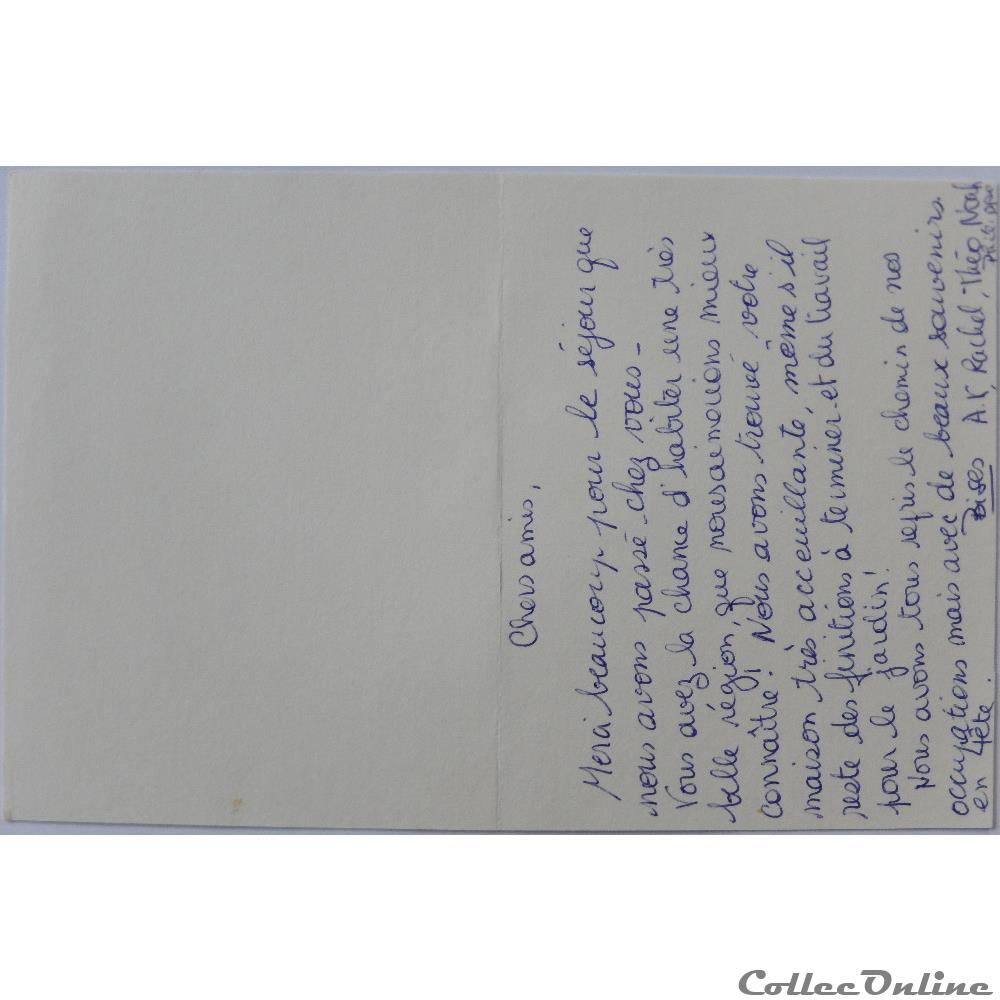 Chers amis,
Merci beaucoup pour le séjour que
nous avons passé chez vous -
Vous avez la chance d'habiter une très
belle région, que nous aimerions mieux
connaître! Nous avons trouvé votre
maison très accueillante, même s'il
reste des finitions à terminer et du travail
pour le jardin!
Nous avons tous repris le chemin de nos
occupations mais avec de beaux souvenirs
en tête. Bises A.V, Rachel, Théo, Noah
Philippe
CollecOnline